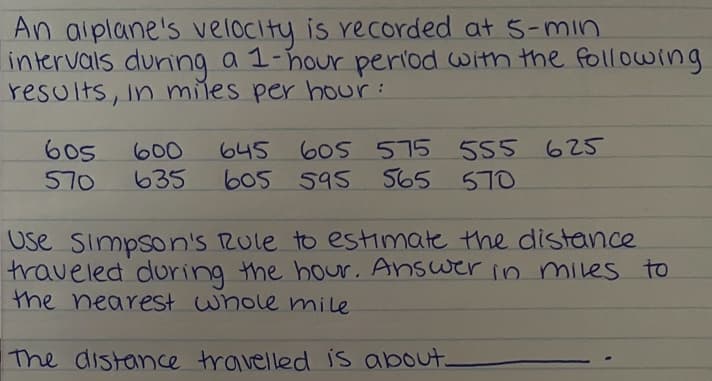 An aiplane's velocity is recorded at 5-min
intervals during a 1-hour period with the following
results, in miles per hour:
605 600 645 605 575 555 625
570 635 605 595 565 570
Use Simpson's Rule to estimate the distance
traveled during the hour. Answer in miles to
the nearest whole mile
The distance travelled is about________.